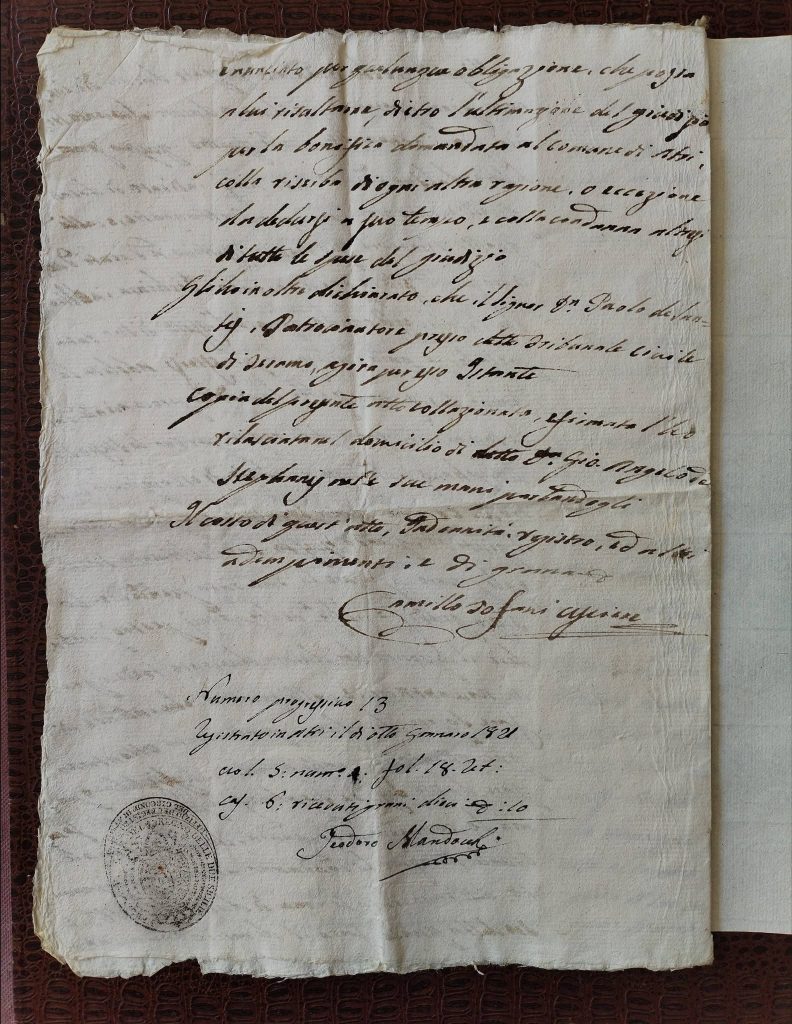 enunciato per qualunque obligazione, che possa
a lui risaltarne, dietro l'ultimazione del giudizio
per la bonifica domandata al comune di Atri,
colla riserba di ogni altra ragione, o eccezione
da dedursi a suo tempo, e colla condanna altresì
di tutte le spese del giudizio
Gli ho inoltre dichiarato, che il Signor Dn Paolo de San-
tis, Patrocinatore presso detto Tribunale Civile
di Teramo, agirà per esso Istante
Copia del presente atto collazionata, e firmata l'ho
rilasciata nel domicilio di detto Dn Gio. Angelo de
Stephanis nelle sue mani parlandogli
Il costo di quest'atto, Indennità, registro, ed altri
adempimenti, è di grana
Camillo Sofani Usciere
Numero progressivo 13
Registrato in Atri il dì otto Gennaro 1821
vol. 5: num. fol. 18. ret:
cas. 6: ricevuti grani dieci =:10
Teodoro Mandocchi